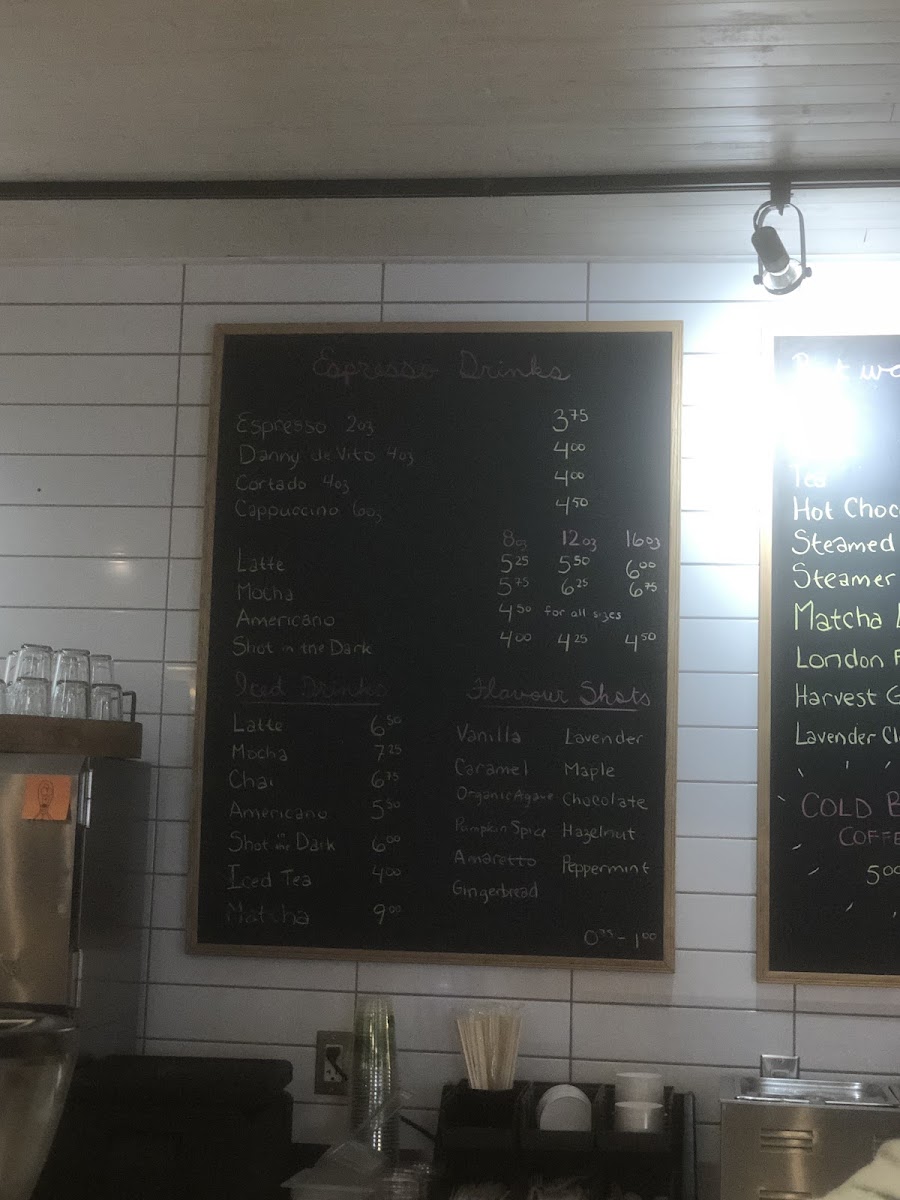 Espresso Drinks
Espresso 2oz 3.75
Danny deVito 4oz 4.00
Cortado 4oz 4.00
Cappuccino 6oz 4.50
8oz 12oz 16oz
Latte 5.25 5.50 6.00
Mocha 5.75 6.25 6.75
Americano 4.50 for all sizes
Shot in the Dark 4.00 4.25 4.50
Iced Drinks
Latte 6.50
Mocha 7.25
Chai 6.75
Americano 5.50
Shot in the Dark 6.00
Iced Tea 4.00
Matcha 9.00
Flavour Shots
Vanilla Lavender
Caramel Maple
Organic Agave Chocolate
Pumpkin Spice Hazelnut
Amaretto Peppermint
Gingerbread
Tea
Hot Choc
Steamed
Steamer
Matcha
London
Harvest
Lavender
COLD
COFFE